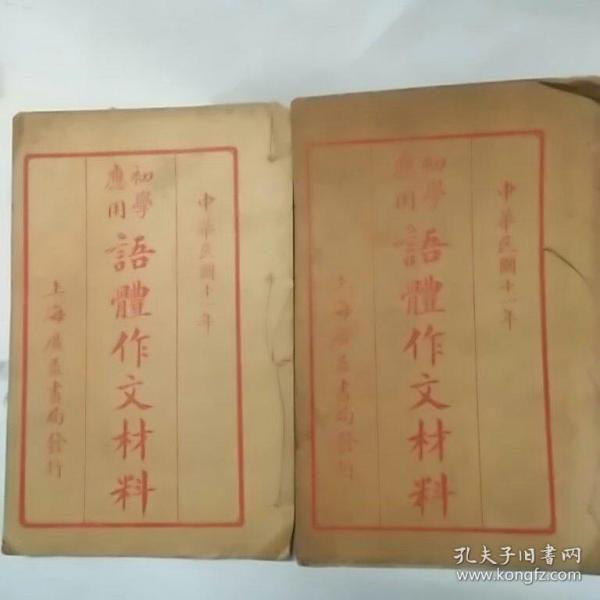 中華民國十一年
初學
應用
語體作文材料
上海廣益書局發行
中華民國十一年
初學
應用
語體作文材料
上海廣益書局發行
孔夫子旧书网
www.kongfz.com